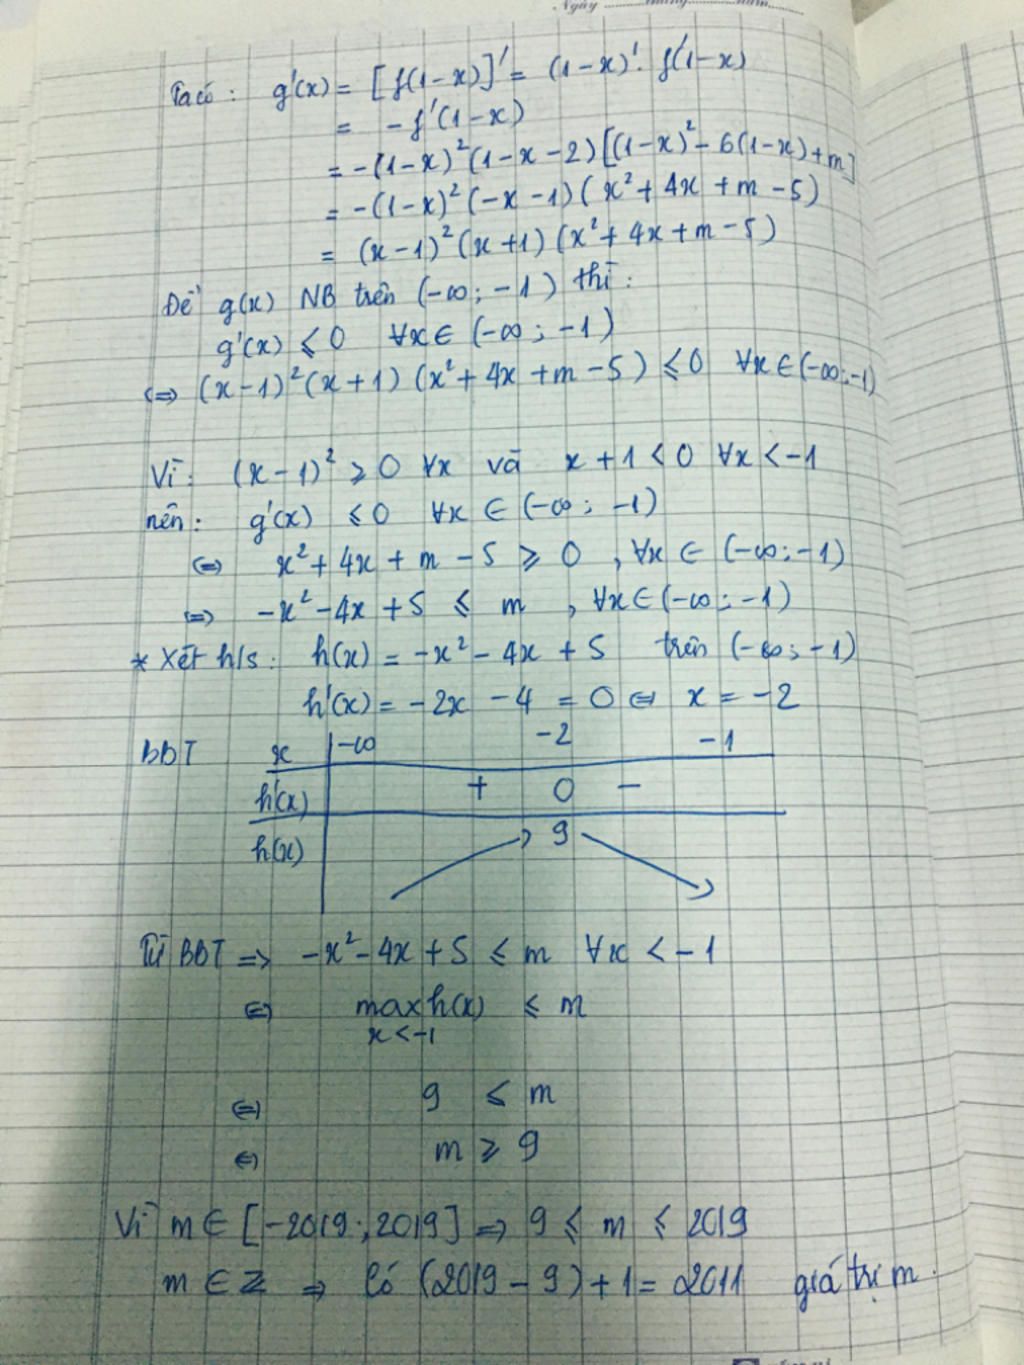 Ngày ........ tháng ........ năm........
Ta có : g'(x) = [f(1-x)]' = (1-x)'. f'(1-x)
= -f'(1-x)
= -(1-x)²(1-x-2)[(1-x)²-6(1-x)+m]
= -(1-x)²(-x-1)(x²+4x+m-5)
= (x-1)²(x+1)(x²+4x+m-5)
Để g(x) NB trên (-∞;-1) thì :
g'(x) ≤ 0 ∀x∈(-∞;-1)
⇔ (x-1)²(x+1)(x²+4x+m-5) ≤ 0 ∀x∈(-∞;-1)
Vì : (x-1)² ≥ 0 ∀x và x+1 < 0 ∀x < -1
nên : g'(x) ≤ 0 ∀x ∈ (-∞; -1)
⇔ x²+4x+m-5 ≥ 0 , ∀x ∈ (-∞;-1)
⇔ -x²-4x+5 ≤ m , ∀x∈(-∞;-1)
* Xét h/s : h(x) = -x²-4x+5 trên (-∞;-1)
h'(x) = -2x - 4 = 0 ⇔ x = -2
BBT x -∞ -2 -1
h'(x) + 0 -
h(x) 9
Từ BBT ⇒ -x²-4x+5 ≤ m ∀x < -1
⇔ max h(x) ≤ m
x<-1
⇔ 9 ≤ m
⇔ m ≥ 9
Vì m∈[-2019;2019] ⇒ 9 ≤ m ≤ 2019
m ∈ Z ⇒ Có (2019-9)+1 = 2011 giá trị m.